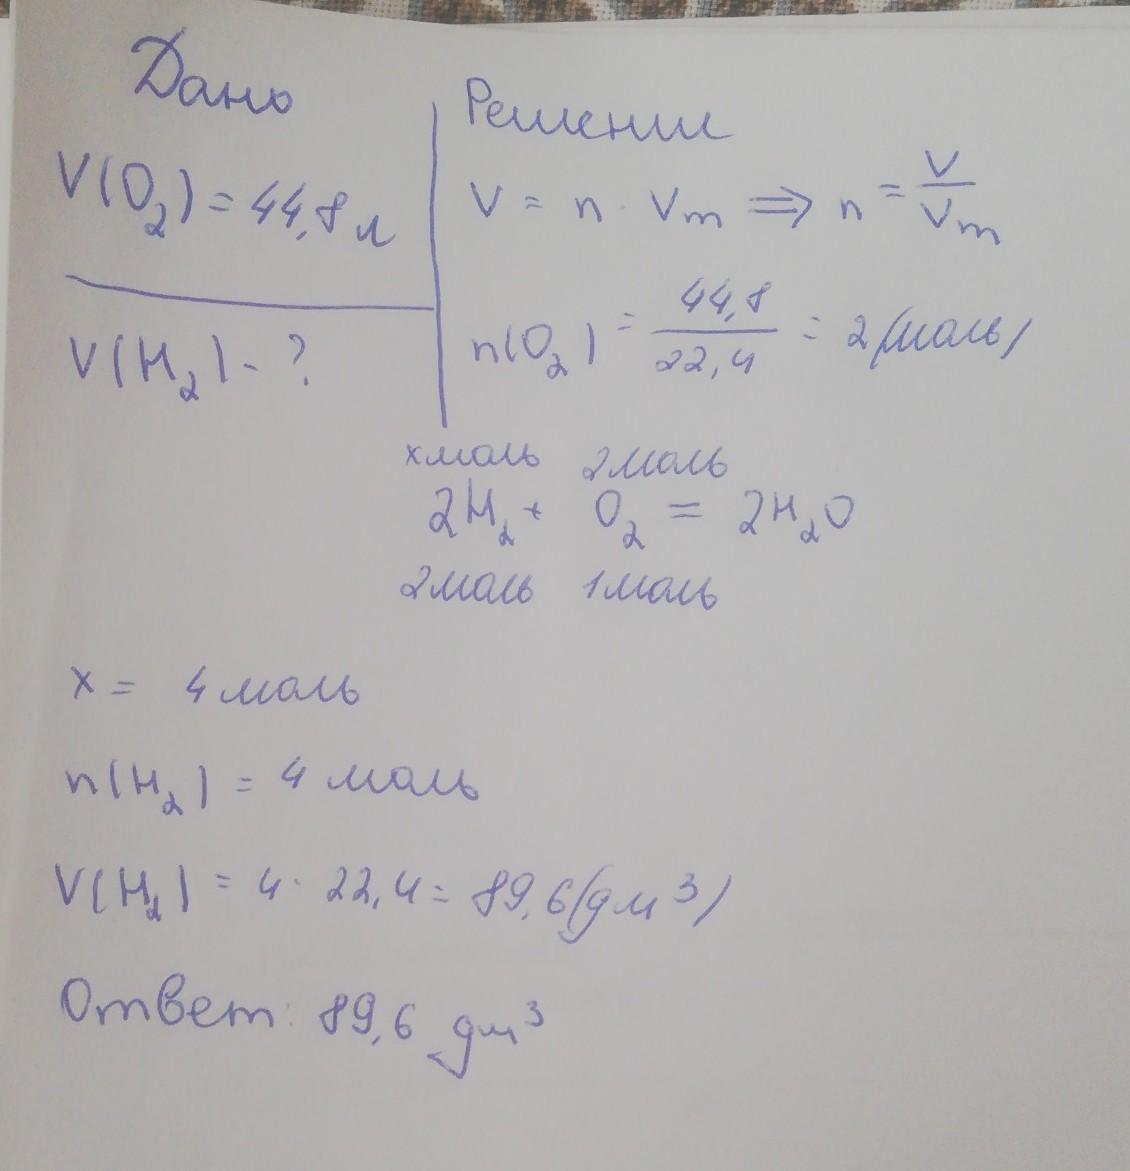 Дано
V(O₂) = 44,8 л
V(H₂) - ?
Решении
V = n · Vm ⇒ n = V/Vm
n(O₂) = 44,8/22,4 = 2(моль)
x моль 2 моль
2H₂ + O₂ = 2H₂O
2 моль 1 моль
x = 4 моль
n(H₂) = 4 моль
V(H₂) = 4 · 22,4 = 89,6(дм³)
Ответ: 89,6 дм³